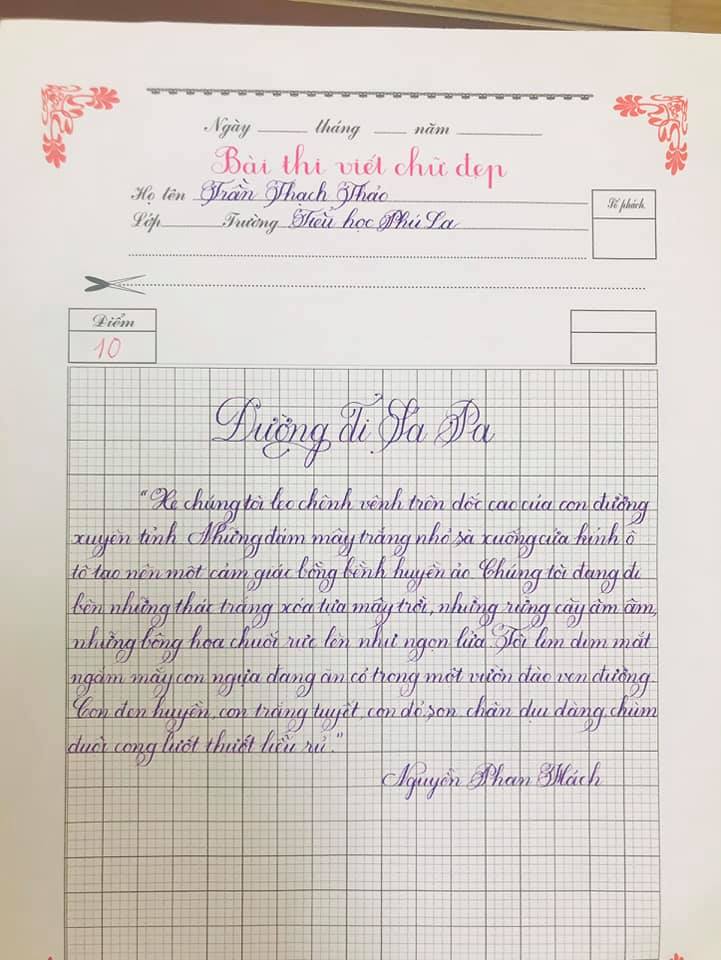 Ngày ____ tháng ___ năm ______
Bài thi viết chữ đẹp
Họ tên Trần Thạch Thảo
Lớp Trường Tiểu học Phú La
Số phách
Điểm
10
Đường đi Sa Pa
"Xe chúng tôi leo chênh vênh trên dốc cao của con đường
xuyên tỉnh. Những đám mây trắng nhỏ sà xuống cửa kính ô
tô tạo nên một cảm giác bồng bềnh huyền ảo. Chúng tôi đang đi
bên những thác trắng xóa tựa mây trời, những rừng cây âm âm,
những bông hoa chuối rực lên như ngọn lửa. Tôi lim dim mắt
ngắm mấy con ngựa đang ăn cỏ trong một vườn đào ven đường.
Con đen huyền, con trắng tuyết, con đỏ son, chân dịu dàng, chùm
đuôi cong lướt thướt liễu rủ."
Nguyễn Phan Hách